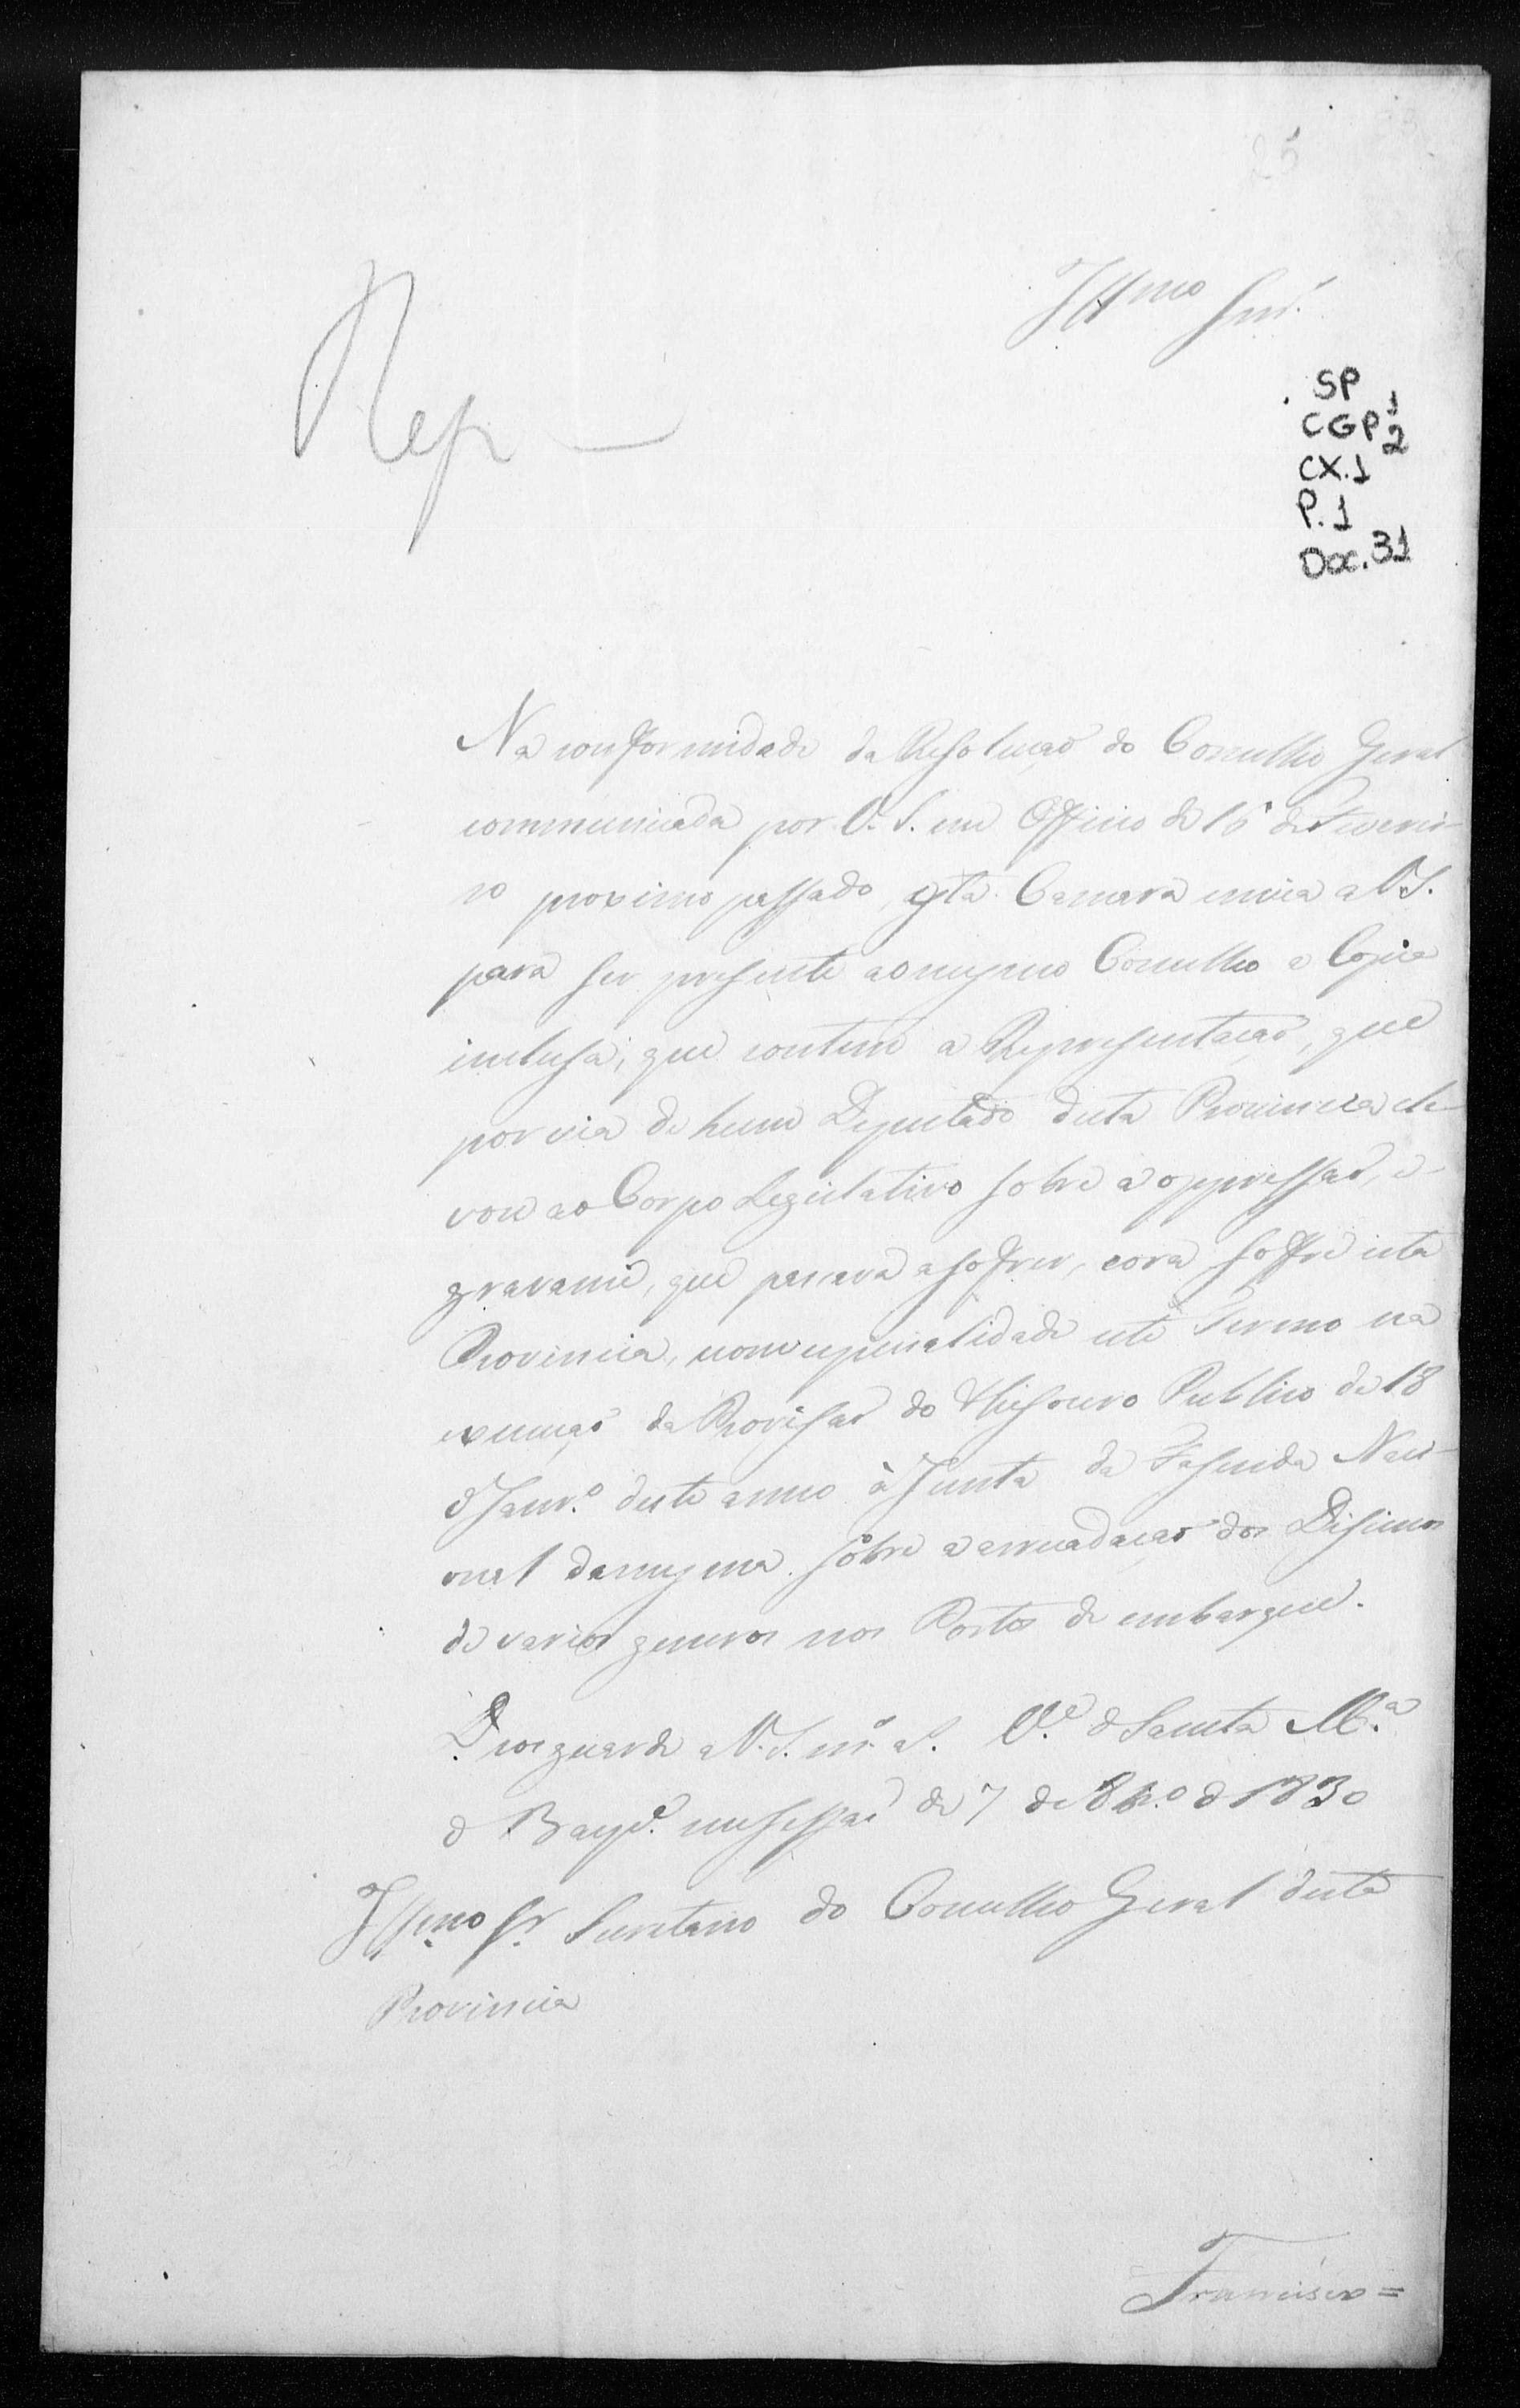 25
Illmo Snr.
Rep
SP
CGP 1
2
CX.1
P.1
Doc.31
Na conformidade da Resolucaõ do Conselho Geral
communicada por V. S. em Officio de 16 de Feverei-
ro proximo passado, esta Camara envia a V S.
para ser presente aomesmo Conselho a Copia
inclusa, que contem a Representaçaõ, que
por via de hum Deputado desta Provincia ele-
vou ao Corpo Legislativo sobre a oppressaõ, e
gravame, que passava asofrer, eora soffre esta
Provincia, com especialidade este Termo na
execuçaõ da Provisaõ do Thesouro Publico de 18
d Janr.o deste anno á Junta da Fasenda Naci-
onal damesma sobre a arrecadaçaõ dos Disimos
de varios generos nos Portos de embarque.
Deos guarde a V. S. m.s a.s V.a d Santa M.a
d Baep.e em sessaõ de 7 de 8br.o d 1830
Illmo Sr. Secretario do Conselho Geral desta
Provincia
Francisco =